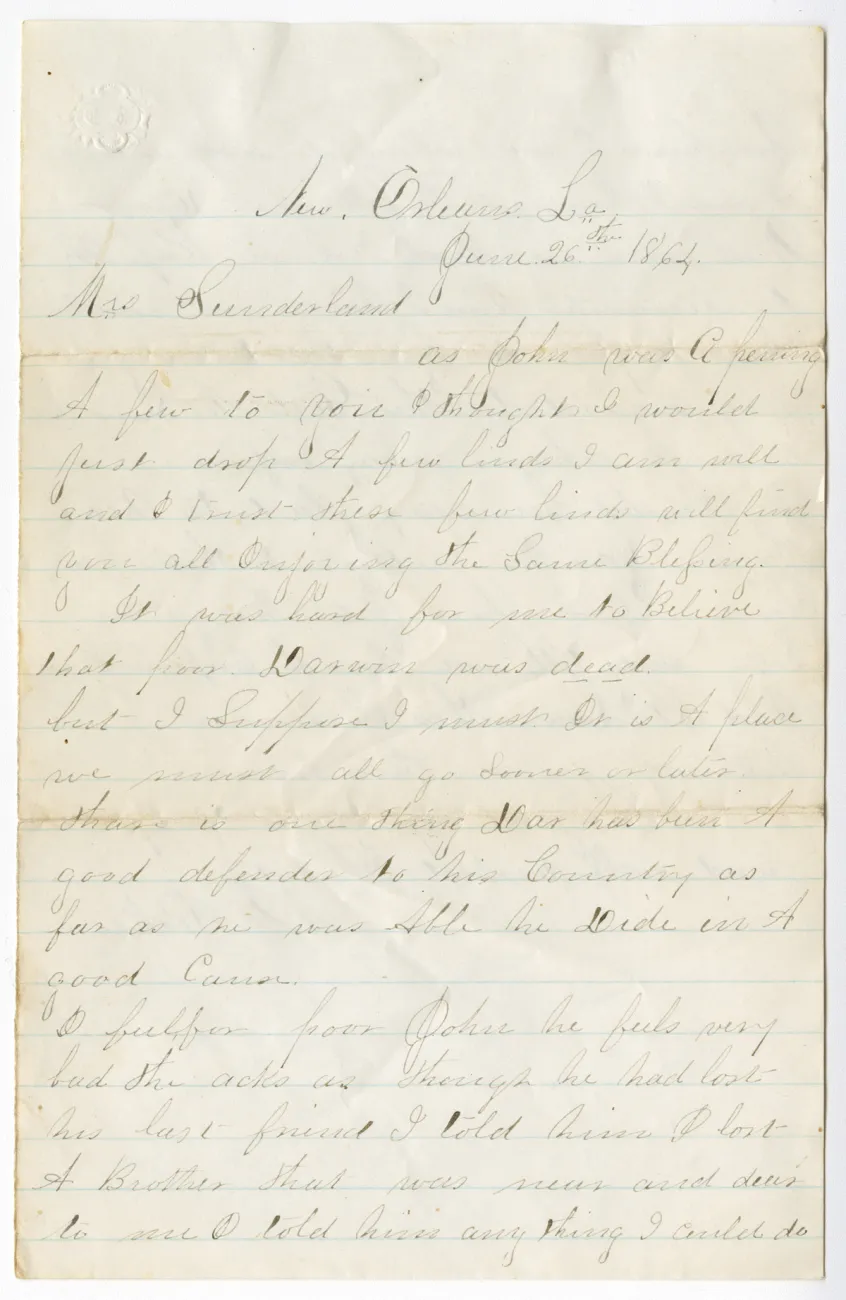 New. Orleans. La
June. 26th 1864.
Mrs Sunderland
as John was A pening
A few to you I thought I would
just drop A few linds I am will
and I trust these few linds will find
you all Injoying the Same Blessing.
It was hard for me to Believe
that poor. Darwin was dead.
but I Suppose I must. It is A place
we must all go Sooner or later.
thare is one thing Dar has bein A
good defender to his Country as
far as he was Able he Dide in A
good Cause.
I feel for poor John he feels very
bad the acks as though he had lost
his last friend I told him I lost
A Brother that was near and dear
to me I told him any thing I could do